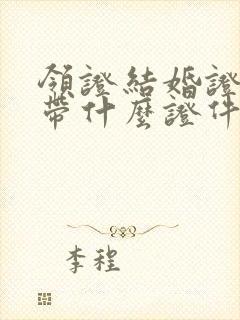 領證結婚證
帶什麼證件
李程